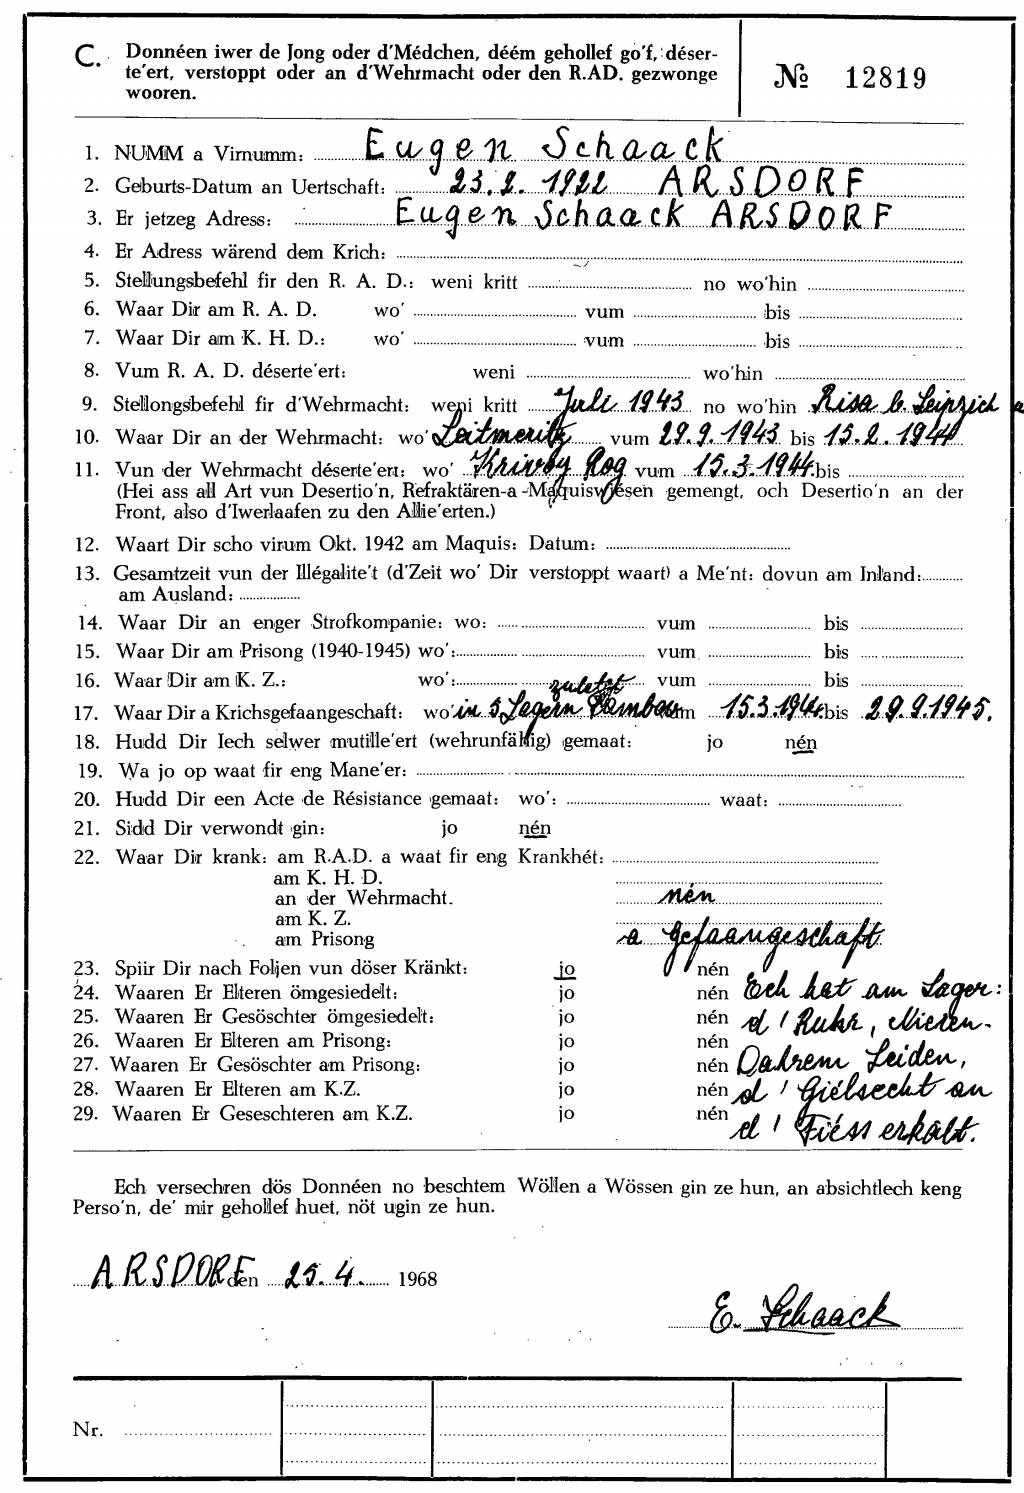 C. Donnéen iwer de Jong oder d'Médchen, déém gehollef go'f, déser-
te'ert, verstoppt oder an d'Wehrmacht oder den R.AD. gezwonge
wooren.
№ 12819
1. NUMM a Virnumm: Eugen Schaack
2. Geburts-Datum an Uertschaft: 23.2.1922 ARSDORF
3. Er jetzeg Adress: Eugen Schaack ARSDORF
4. Er Adress wärend dem Krich:
5. Stellungsbefehl fir den R. A. D.: weni kritt no wo'hin
6. Waar Dir am R. A. D. wo' vum bis
7. Waar Dir am K. H. D.: wo' vum bis
8. Vum R. A. D. déserte'ert: weni wo'hin
9. Stellongsbefehl fir d'Wehrmacht: weni kritt Juli 1943 no wo'hin Risa b. Leipzich
10. Waar Dir an der Wehrmacht: wo' Leitmeritz vum 29.9.1943 bis 15.2.1944
11. Vun der Wehrmacht déserte'ert: wo' Kriwoy Rog vum 15.3.1944 bis
(Hei ass all Art vun Desertio'n, Refraktären-a-Maquiswiesen gemengt, och Desertio'n an der
Front, also d'Iwerlaafen zu den Allie'erten.)
12. Waart Dir scho virum Okt. 1942 am Maquis: Datum:
13. Gesamtzeit vun der Illégalite't (d'Zeit wo' Dir verstoppt waart) a Me'nt: dovun am Inland:
am Ausland:
14. Waar Dir an enger Strofkompanie: wo: vum bis
15. Waar Dir am Prisong (1940-1945) wo': vum bis
16. Waar Dir am K. Z.: wo': vum bis
zuletzt
17. Waar Dir a Krichsgefaangeschaft: wo' in 5 Lagern Tambow vum 15.3.1944 bis 29.9.1945.
18. Hudd Dir Iech selwer mutille'ert (wehrunfähig) gemaat: jo nén
19. Wa jo op waat fir eng Mane'er:
20. Hudd Dir een Acte de Résistance gemaat: wo': waat:
21. Sidd Dir verwondt gin: jo nén
22. Waar Dir krank: am R.A.D. a waat fir eng Krankhét:
am K. H. D.
an der Wehrmacht. nén
am K. Z.
am Prisong a Gefaangeschaft
23. Spiir Dir nach Foljen vun döser Kränkt: jo nén
24. Waaren Er Elteren ömgesiedelt: jo nén Ech hat am Lager:
25. Waaren Er Gesöschter ömgesiedelt: jo nén d'Ruhr, Nieren-
26. Waaren Er Elteren am Prisong: jo nén
27. Waaren Er Gesöschter am Prisong: jo nén Dahrem Leiden,
28. Waaren Er Elteren am K.Z. jo nén d'Giélsecht an
29. Waaren Er Geseschteren am K.Z. jo nén d'Fiéss erkalt.
Ech versechren dös Donnéen no beschtem Wöllen a Wössen gin ze hun, an absichtlech keng
Perso'n, de' mir gehollef huet, nöt ugin ze hun.
ARSDORF den 25.4. 1968
E. Schaack
Nr.